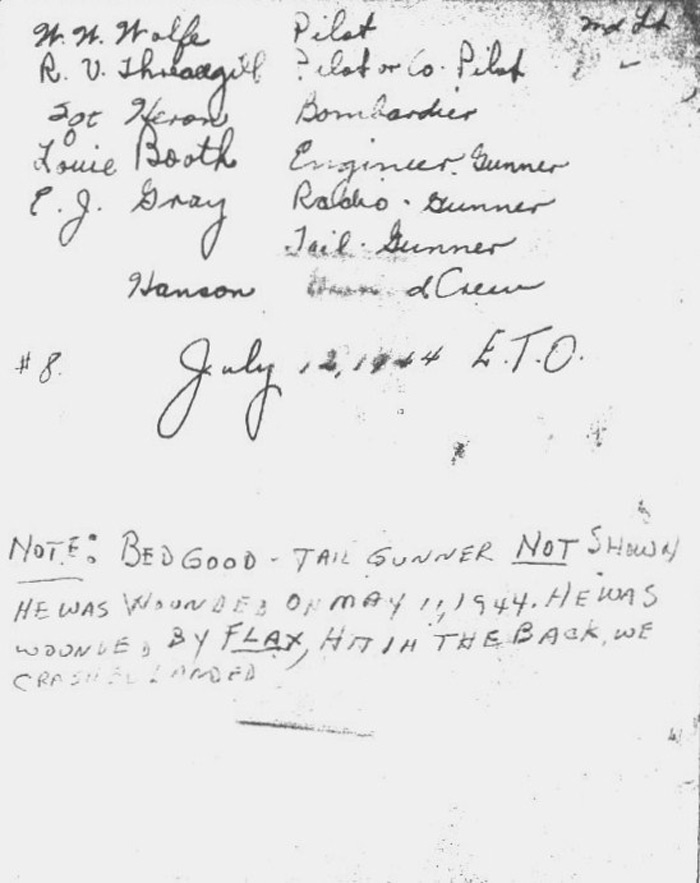 W. W. Wolfe Pilot 2nd Lt
R. V. Threadgill Pilot or Co. Pilot "
Sgt Heron Bombardier
Louie Booth Engineer. Gunner
E. J. Gray Radio. Gunner
Tail. Gunner
Hanson Ground Crew
#8. July 12, 1944 E.T.O.
NOTE: BEDGOOD - TAIL GUNNER NOT SHOWN
HE WAS WOUNDED ON MAY 11, 1944. HE WAS
WOUNDED BY FLAX, HIT IN THE BACK, WE
CRASHED LANDED